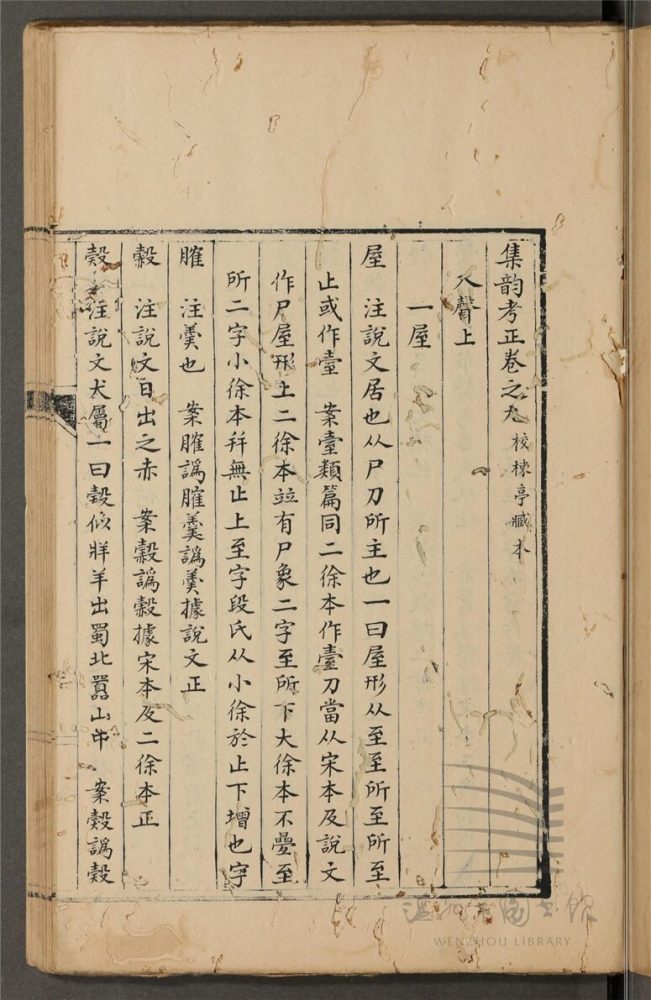 集韵考正卷之九 校楝亭臧本
入聲上
一屋
屋 注說文居也从尸刀所主也一曰屋形从至至所至所至
止或作臺 案臺類篇同二徐本作臺刀當从宋本及說文
作尸屋形上二徐本竝有尸象二字至所下大徐本不疊至
所二字小徐本幷無止上至字段氏从小徐於止下增也字
臛 注羹也 案臛譌臛羹譌羹據說文正
縠 注說文日出之赤 案縠譌縠據宋本及二徐本正
縠 注說文犬屬一曰縠佀牂羊出蜀北嚻山中 案縠譌縠
WENZHOU LIBRARY